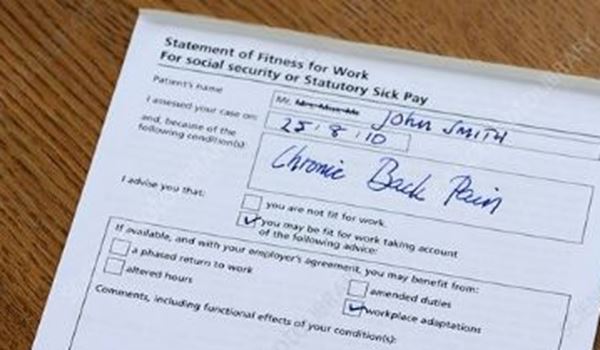 Statement of Fitness for Work
For social security or Statutory Sick Pay
Patient's name
Mr, Mrs, Miss, Ms John Smith
I assessed your case on: 25 / 8 / 10
and, because of the
following condition(s): Chronic Back Pain
I advise you that:
you are not fit for work.
you may be fit for work taking account
of the following advice:
If available, and with your employer's agreement, you may benefit from:
a phased return to work
amended duties
altered hours
workplace adaptations
Comments, including functional effects of your condition(s):